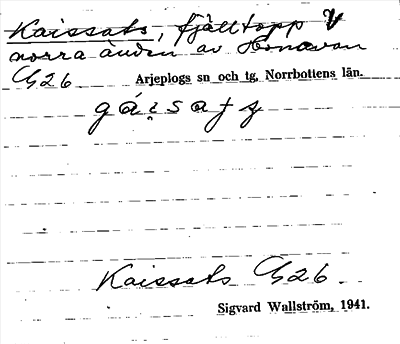 Kaissats, fjälltopp V
norra änden av Hornavan
G26 Arjeplogs sn och tg, Norrbottens län.
gái̯sat̯s
Kaissats G26.
Sigvard Wallström, 1941.